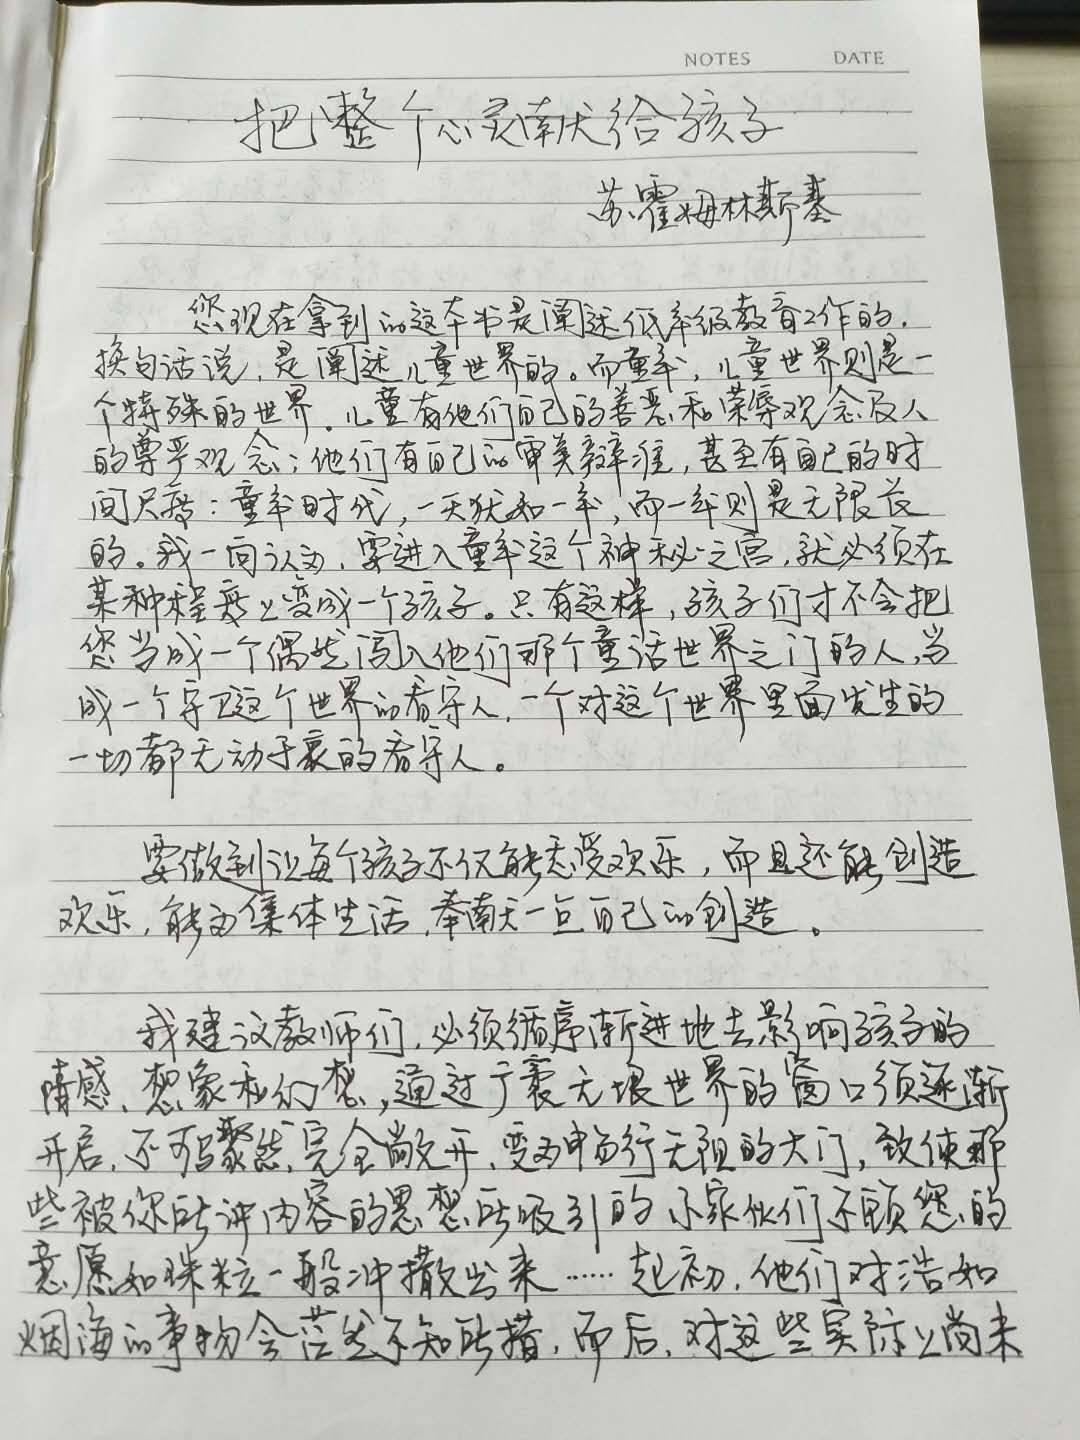 NOTES DATE
把整个心灵献给孩子
苏霍姆林斯基
您现在拿到的这本书是阐述低年级教育工作的,
换句话说,是阐述儿童世界的。而童年,儿童世界则是一
个特殊的世界。儿童有他们自己的善恶和荣辱观念及人
的尊严观念;他们有自己的审美标准,甚至有自己的时
间尺度:童年时代,一天犹如一年,而一年则是无限长
的。我一向认为,要进入童年这个神秘之宫,就必须在
某种程度上变成一个孩子。只有这样,孩子们才不会把
您当成一个偶然闯入他们那个童话世界之门的人,当
成一个守卫这个世界的看守人,一个对这个世界里面发生的
一切都无动于衷的看守人。
要做到让每个孩子不仅能享受欢乐,而且还能创造
欢乐,能为集体生活,奉献一点自己的创造。
我建议教师们,必须循序渐进地去影响孩子的
情感、想象和幻想,通过广袤无垠世界的窗口须逐渐
开启,不可骤然,完全敞开,变为畅行无阻的大门,致使那
些被你所讲内容的思想所吸引的小家伙们不顾您的
意愿如珠粒一般冲撒出来……起初,他们对浩如
烟海的事物会茫然不知所措,而后,对这些实际上尚未